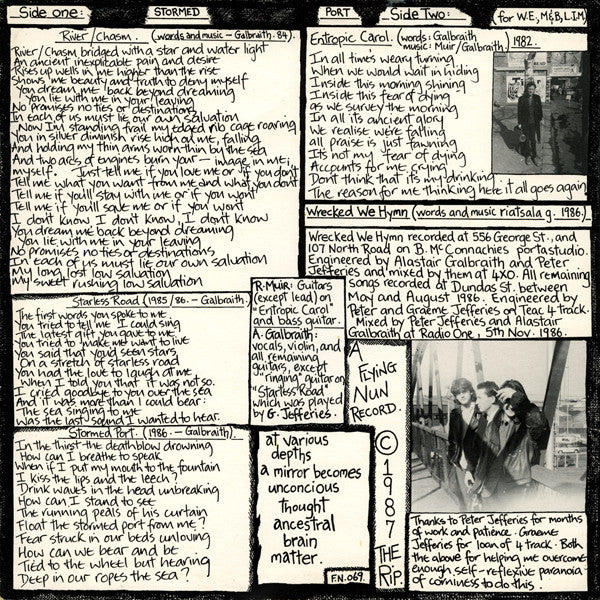 Side one:
STORMED
PORT
Side Two:
(for W.E, M&B, L.I.M)
River/Chasm. (words and music - Galbraith. 84).
River/Chasm bridged with a star and water light
An ancient inexplicable pain and desire
Rises up wells in me higher than the rise
Shows me beauty and truth to deny myself
You dream me back beyond dreaming
You lie with me in your leaving
No promises no ties or destinations
In each of us must lie our own salvation
Now I'm standing trail my edged rib cage roaring
You in silver diminish rise high of me, falling
And holding my thin arms worn thin by the sea
And two arcs of engines burn your - image in me,
myself. Just tell me if you love me or if you don't
Tell me what you want from me and what you don't
Tell me if you'll stay with me or if you won't
Tell me if you'll save me or if you won't
I don't know I don't know, I don't know
You dream me back beyond dreaming
You lie with me in your leaving
No promises no ties or destinations
In each of us must lie our own salvation
My long lost low salvation
My sweet rushing low salvation
Starless Road (1985/86. - Galbraith.)
The first words you spoke to me.
You tried to tell me I could sing
The latest gift you gave to me
You tried to make me want to live
You said that you'd seen stars
On a stretch of starless road
You had the love to laugh at me
When I told you that it was not so.
I cried goodbye to you over the sea
And it was more than I could bear:
The sea singing to me
Was the last sound I wanted to hear.
Stormed Port. (1986. - Galbraith).
In the thirst the deathblow drowning
How can I breathe to speak
When if I put my mouth to the fountain
I kiss the lips and the leech?
Drink waves in the head unbreaking
How can I stand to see
The running peals of his curtain
Float the stormed port from me?
Fear struck in our beds unloving
How can we bear and be
Tied to the wheel but hearing
Deep in our ropes the sea?
R. Muir: Guitars
(except lead) on
"Entropic Carol"
and bass guitar.
A. Galbraith:
vocals, violin, and
all remaining
guitars, except
"ringing" guitar on
"Starless Road"
which was played
by G. Jefferies.
at various
depths
a mirror becomes
unconcious
thought
ancestral
brain
matter.
F.N. 069.
Entropic Carol. (words: Galbraith
music: Muir/Galbraith) 1982.
In all time's weary turning
When we would wait in hiding
Inside this morning shining
Inside this fear of dying
as we survey the morning
In all its ancient glory
We realise we're falling
all praise is just fawning
It's not my fear of dying
Accounts for me crying
Don't think that it's my drinking...
The reason for me thinking here it all goes again
Wrecked We Hymn (words and music riatsala g. 1986.)
Wrecked We Hymn recorded at 556 George St., and
107 North Road on B. McConnachies portastudio.
Engineered by Alastair Galbraith and Peter
Jefferies and mixed by them at 4XO. All remaining
songs recorded at Dundas St. between
May and August 1986. Engineered by
Peter and Graeme Jefferies on Teac 4 track.
Mixed by Peter Jefferies and Alastair
Galbraith at Radio One, 5th Nov. 1986.
A
FLYING
NUN
RECORD.
©
1
9
8
7
THE
RIP.
Thanks to Peter Jefferies for months
of work and patience. Graeme
Jefferies for loan of 4 track. Both
the above for helping me overcome
enough self-reflexive paranoia
of corniness to do this.